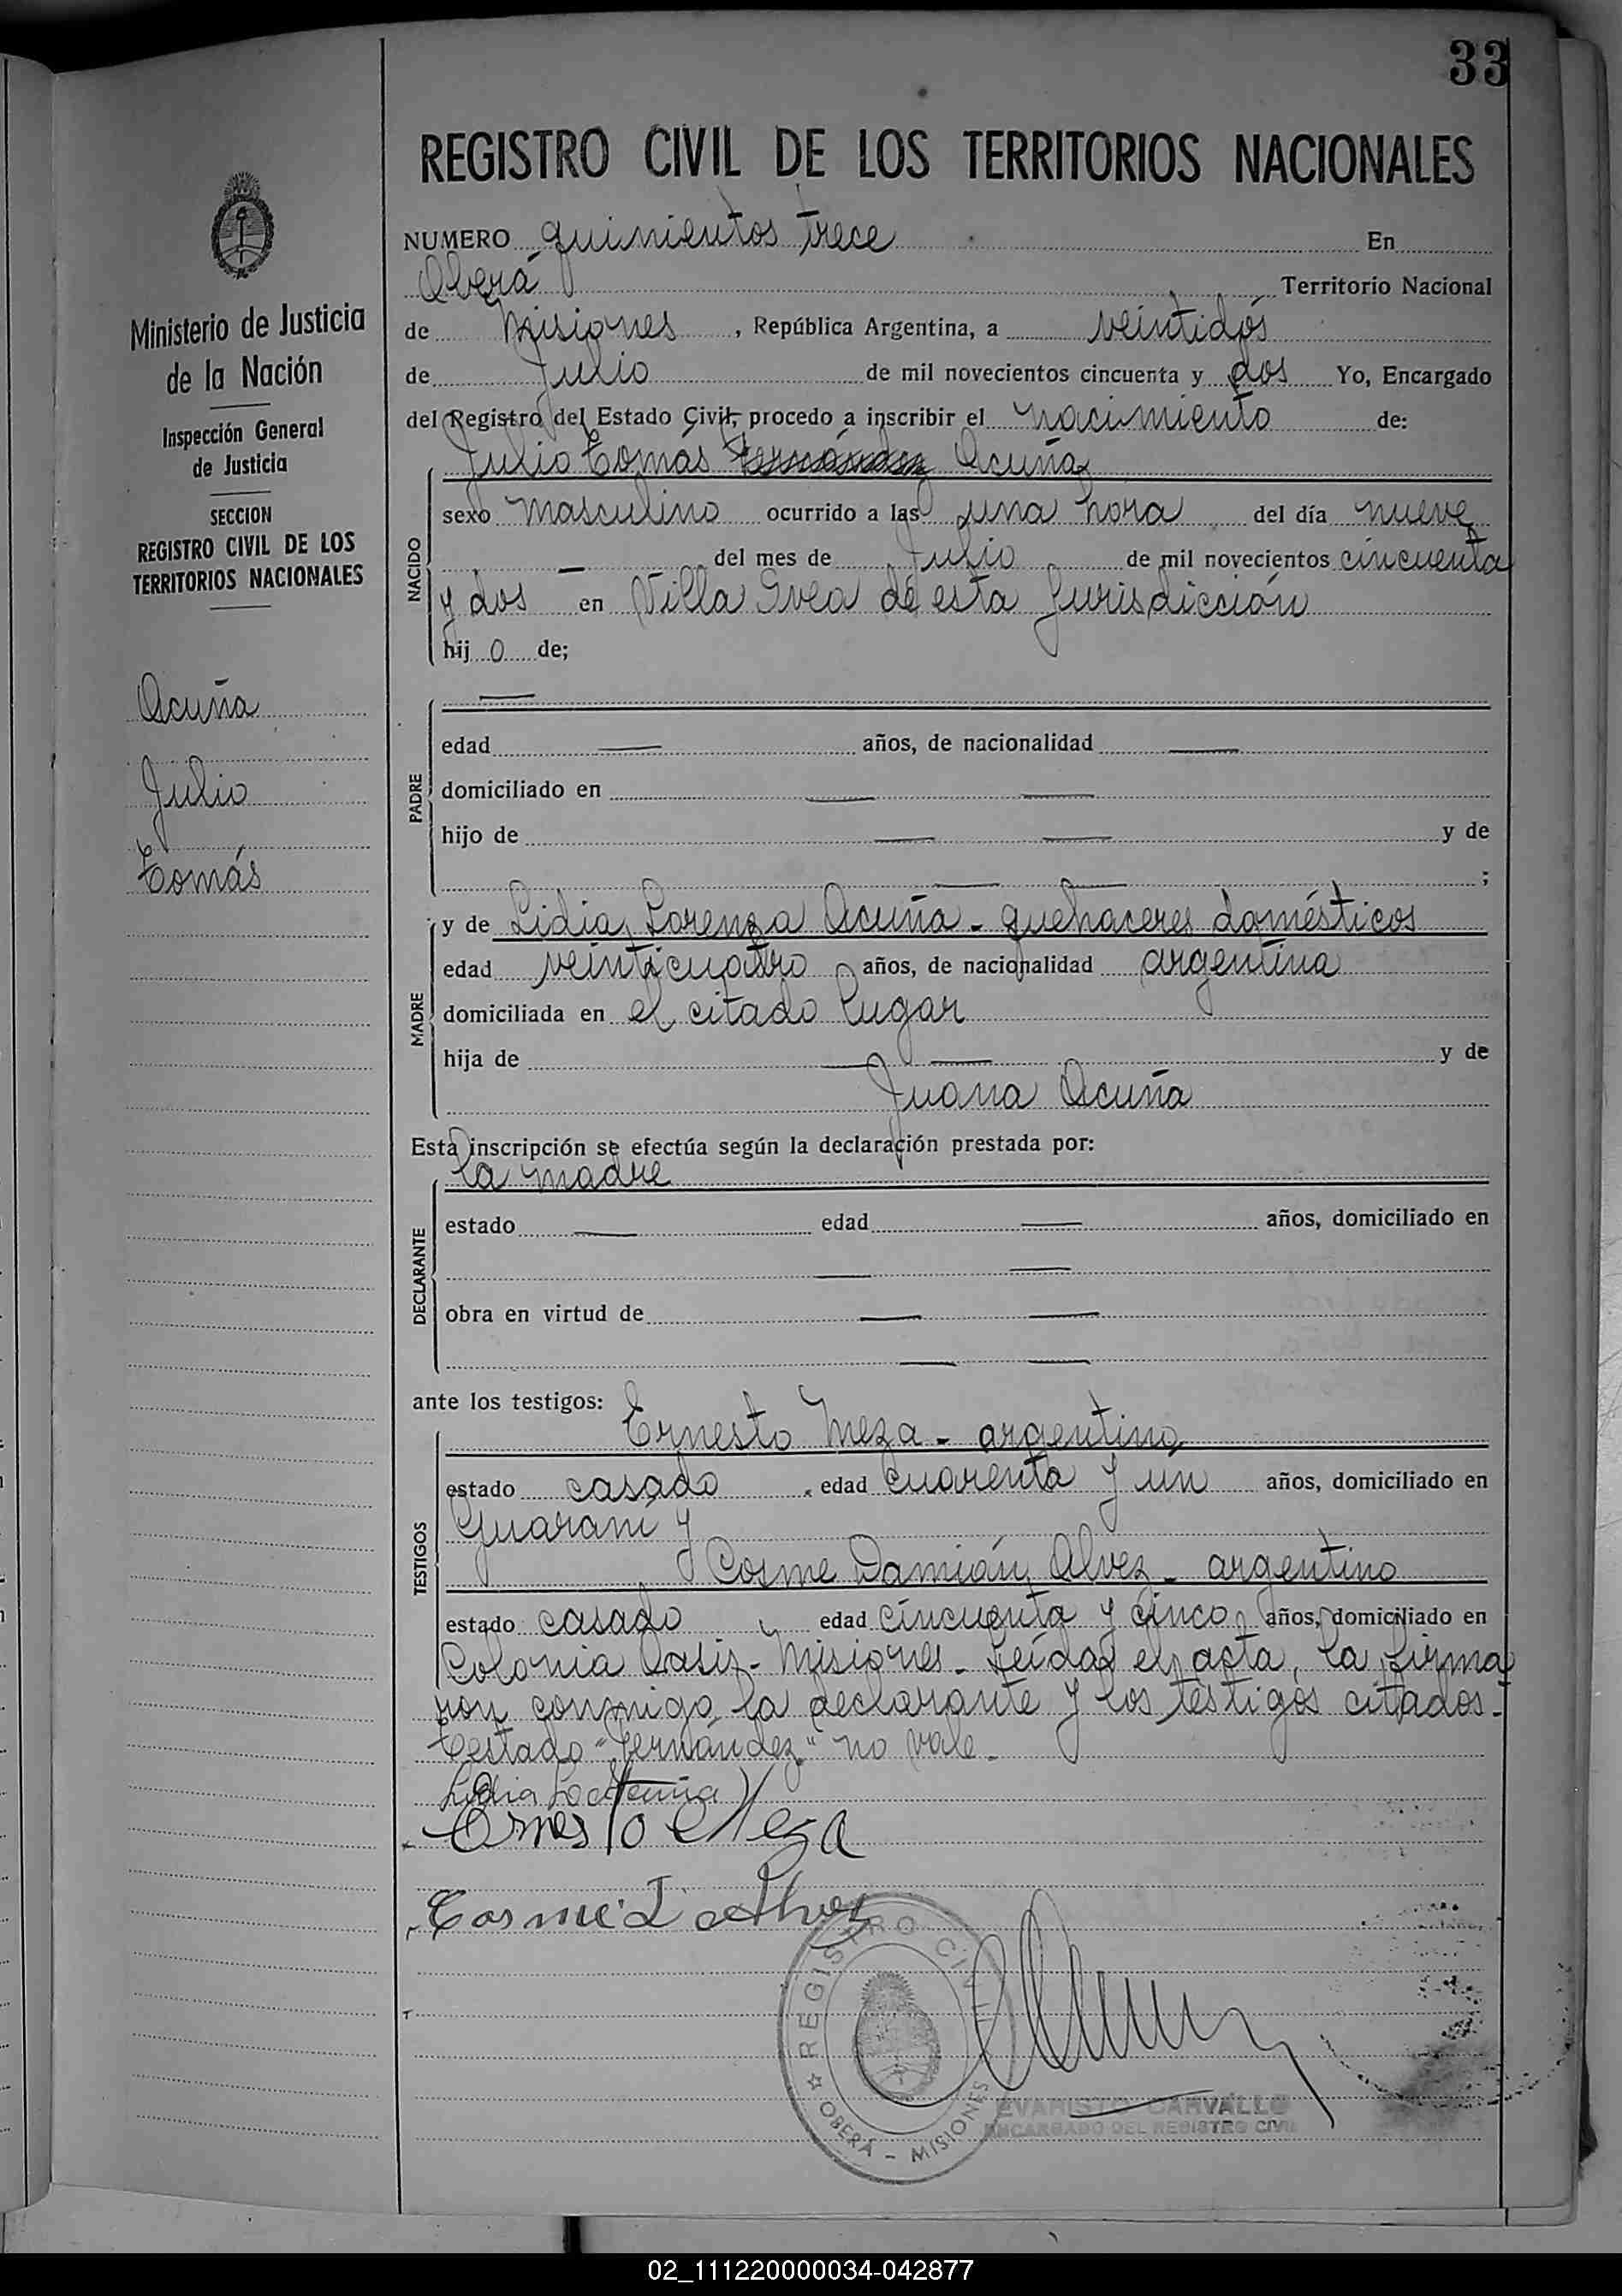 33
REGISTRO CIVIL DE LOS TERRITORIOS NACIONALES
NUMERO quinientos trece En
Oberá Territorio Nacional
de Misiones, República Argentina, a veintidós
de Julio de mil novecientos cincuenta y dos Yo, Encargado
del Registro del Estado Civil, procedo a inscribir el nacimiento de:
Julio Tomás Fernández Acuña
NACIDO
sexo masculino ocurrido a las una hora del día nueve
— del mes de Julio de mil novecientos cincuenta
y dos en Villa Svea de esta Jurisdicción
hij o de;
PADRE
edad — años, de nacionalidad —
domiciliado en — —
hijo de — — y de
— — ;
MADRE
y de Lidia Lorenza Acuña - quehaceres domésticos
edad veinticuatro años, de nacionalidad argentina
domiciliada en el citado lugar
hija de — — y de
Juana Acuña
Esta inscripción se efectúa según la declaración prestada por:
la madre
DECLARANTE
estado — edad — años, domiciliado en
— —
obra en virtud de — —
— —
ante los testigos:
TESTIGOS
Ernesto Meza - argentino
estado casado edad cuarenta y un años, domiciliado en
Guaraní y
Cosme Damián Alvez - argentino
estado casado edad cincuenta y cinco años, domiciliado en
Colonia Oasis - Misiones - Leída el acta, la firma
ron conmigo la declarante y los testigos citados -
Testado "Fernández" no vale -
Lidia Lo Acuña
Ernesto Meza
Cosme D Alvez
REGISTRO CIVIL
OBERÁ - MISIONES
EVARISTO CARVALLO
ENCARGADO DEL REGISTRO CIVIL
Ministerio de Justicia
de la Nación
Inspección General
de Justicia
SECCION
REGISTRO CIVIL DE LOS
TERRITORIOS NACIONALES
Acuña
Julio
Tomás
02_111220000034-042877